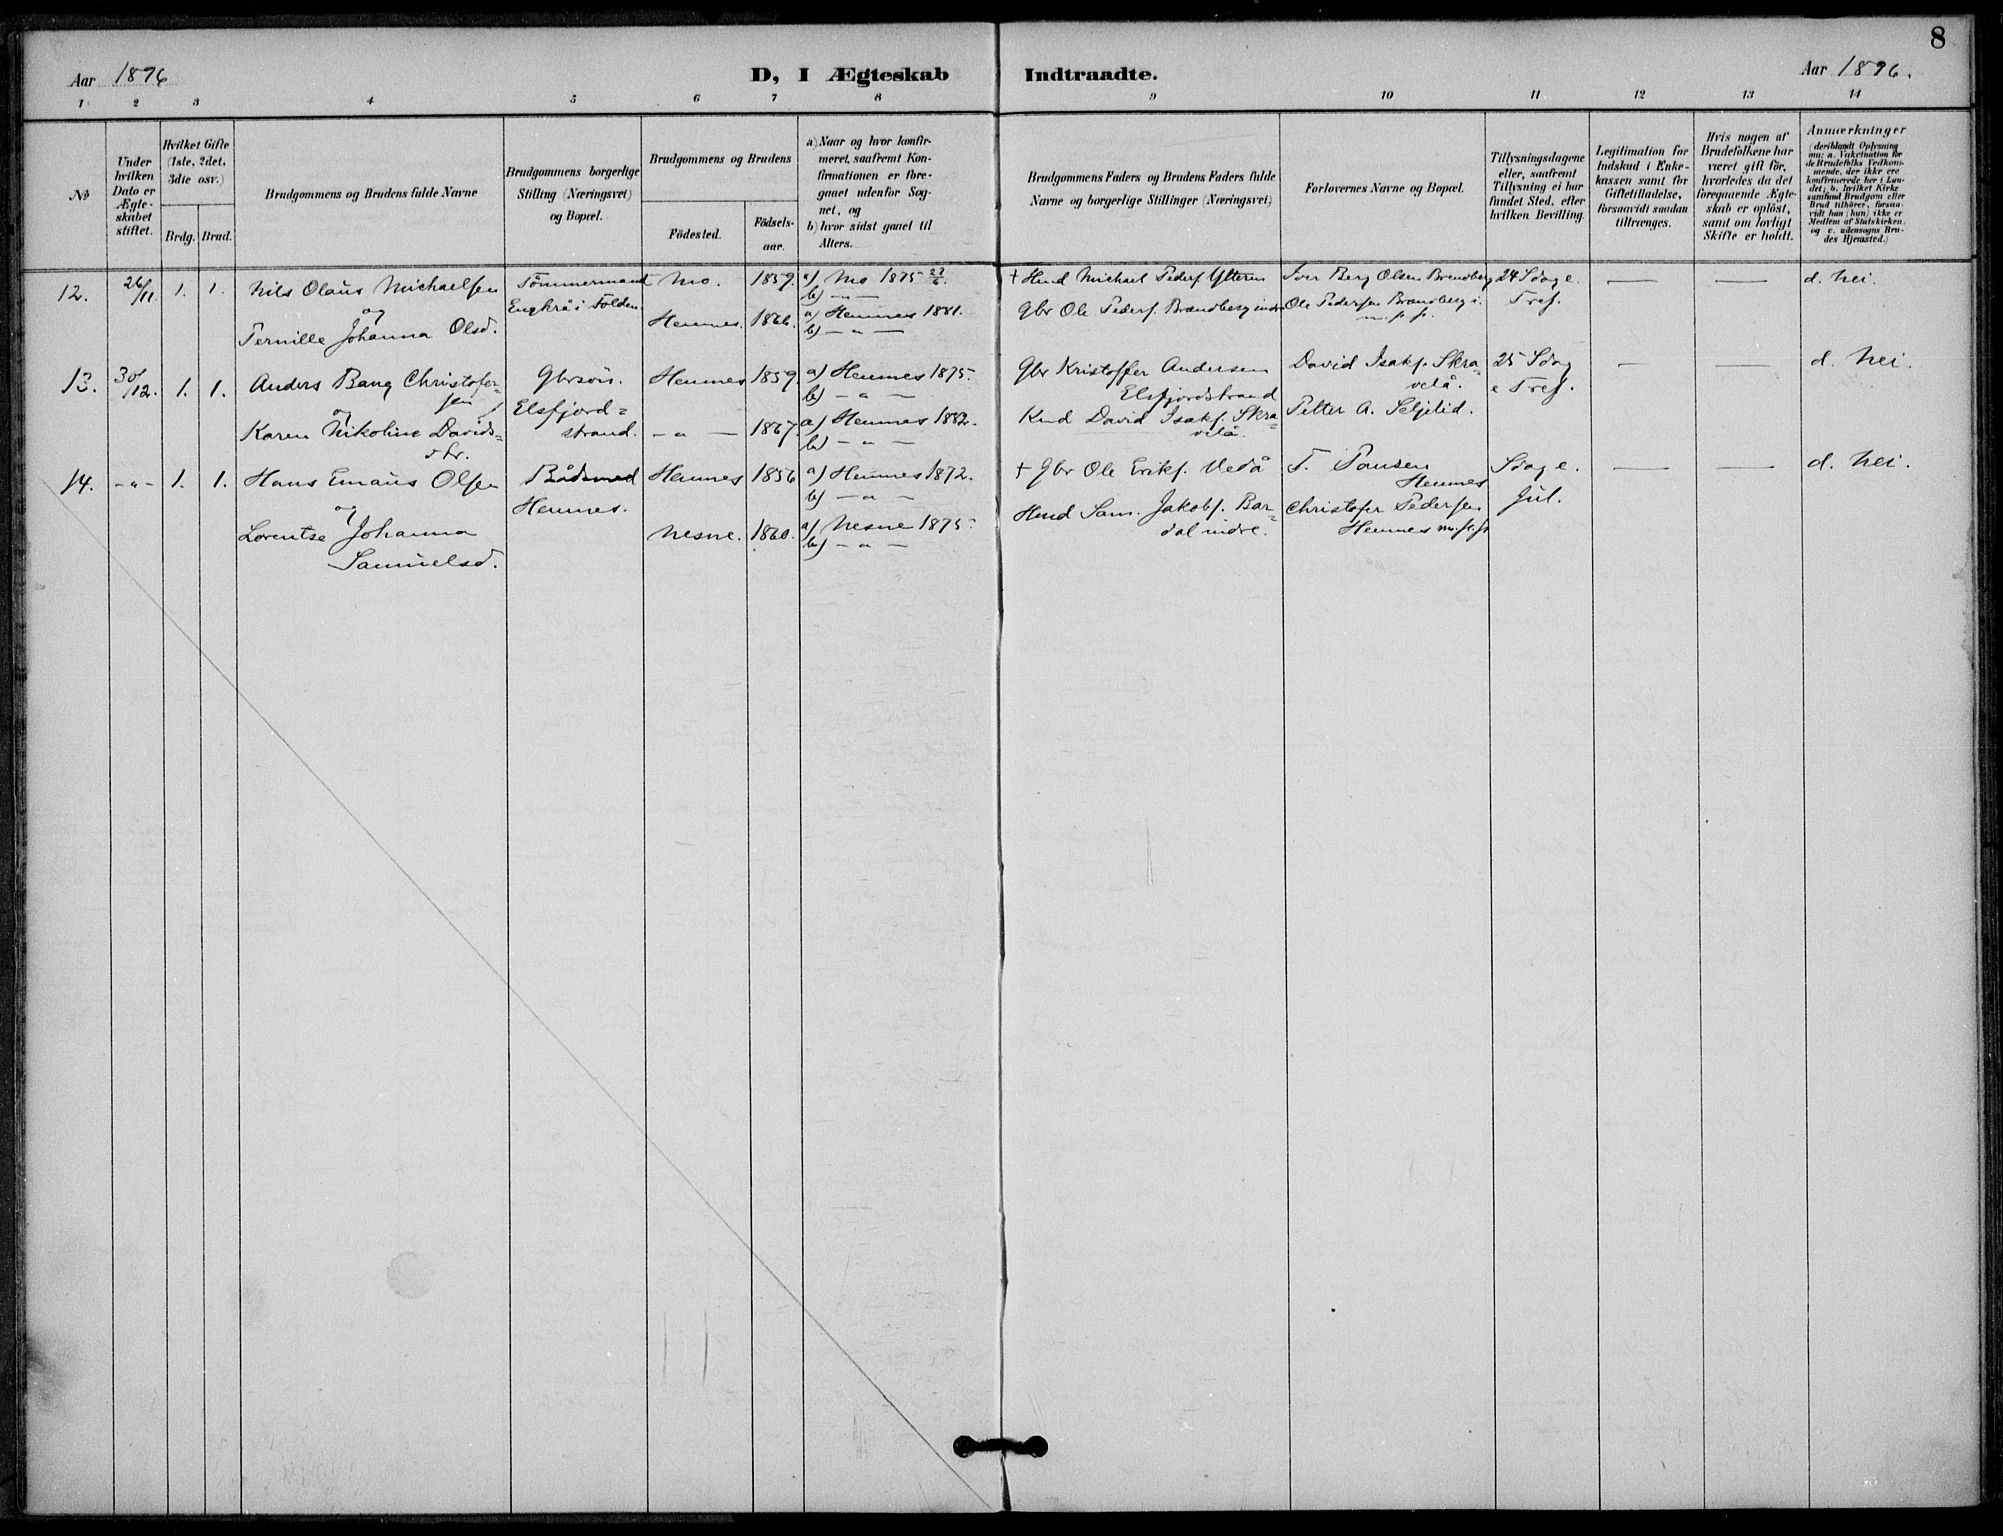 8
Aar 1896 D, I Ægteskab Indtraadte. Aar 1896.
1 2 3 4 5 6 7 8 9 10 11 12 13 14
No
Under hvilken Dato er Ægteskabet stiftet.
Hvilket Gifte (1ste, 2det, 3die osv.)
Brdg. Brud.
Brudgommens og Brudens fulde Navne
Brudgommens borgerlige Stilling (Næringsvei) og Bopæl.
Brudgommens og Brudens
Födested. Födselsaar.
a) Naar og hvor konfirmeret, saafremt Konfirmationen er foregaaet udenfor Sognet, og
b) hvor sidst gaaet til Alters.
Brudgommens Faders og Brudens Faders fulde Navne og borgerlige Stillinger (Næringsvei)
Forlovernes Navne og Bopæl.
Tillysningsdagene eller, saafremt Tillysning ei har fundet Sted, efter hvilken Bevilling.
Legitimation for Indskud i Enkekassen samt for Giftetilladelse, forsaavidt saadan tiltrænges.
Hvis nogen af Brudefolkene har været gift för, hvorledes da det foregaaende Ægteskab er oplöst, samt om lovligt Skifte er holdt.
Anmærkninger (deriblandt Oplysning om: a. Vakcination for de Brudefolks Vedkommende, der ikke ere konfirmerede her i Landet; b. hvilket Kirkesamfund Brudgom eller Brud tilhører, forsaavidt han (hun) ikke er Medlem af Statskirken. og c. udensogns Brudes Hjemsted.)
12. 26/11. 1. 1. Nils Olaus Michaelsen Tömmermand Mo. 1859. a) Mo 1875 27/6. † Hmd Michael Peders. Ytteren Iver Berg Olsen Brendberg 24 Sdag e. — — d. Nei.
og Engkrå i Folden b) — " —
Hemnes. 1866. a) Hemnes 1881. Gbr Ole Peders. Brændberg indre Ole Pedersen Brændberg i. Tref.
Pernille Johanna Olsd. b) — " — m. p. p.
13. 30/12. 1. 1. Anders Bang Christofersen Gbrsön. Hemnes 1859. a) Hemnes 1875. Gbr Kristoffer Andersen David Isaks. Skravelå. 25 Sdag — — d. Nei.
og Elsfjordstrand. b) — " — Elsfjordstrand e Tref.
Karen Nikoline Davidsdtr. — " — 1867. a) Hemnes 1882. Kmd David Isaks. Skravelå. Petter A. Seljelid.
b) — " —
14. — " — 1. 1. Hans Emaus Olsen Bådsmed Hemnes 1856 a) Hemnes 1872. † Gbr Ole Eriks. Vedå Hemnes Sdag e. — — d. Nei.
og Hemnes. b) — " — Jul.
Lorentse Johanna Samuelsd. Nesne. 1860. a) Nesne 1875. Hmd Sam. Jakobs. Bardal indre. Christofer Pedersen
b) — " — Hemnes m. p. p.